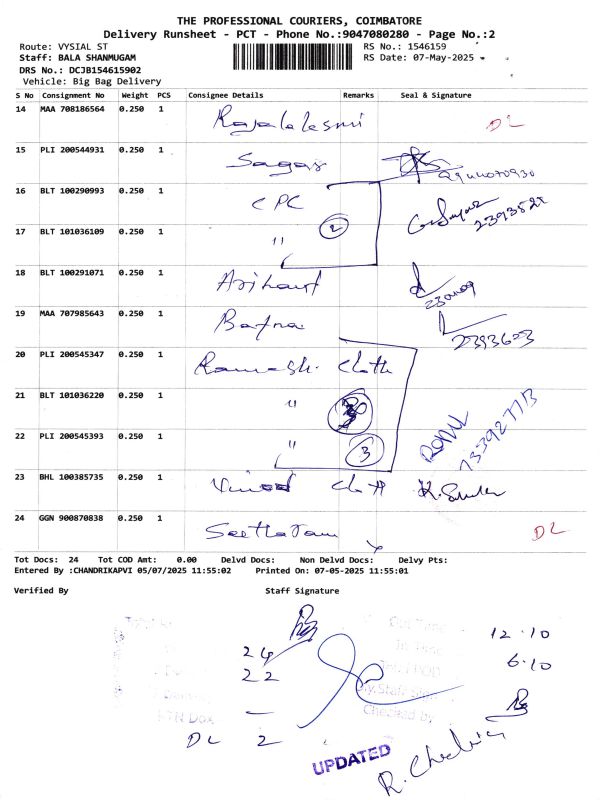 THE PROFESSIONAL COURIERS, COIMBATORE
Delivery Runsheet - PCT - Phone No.:9047080280 - Page No.:2
Route: VYSIAL ST
RS No.: 1546159
Staff: BALA SHANMUGAM
RS Date: 07-May-2025
DRS No.: DCJB154615902
Vehicle: Big Bag Delivery
S No Consignment No Weight PCS Consignee Details Remarks Seal & Signature
14 MAA 708186564 0.250 1 Rajalakshmi DL
15 PLI 200544931 0.250 1 Sagar
16 BLT 100290993 0.250 1 CPC
2
17 BLT 101036109 0.250 1 "
18 BLT 100291071 0.250 1 Arihant
19 MAA 707985643 0.250 1 Bafna
2393623
20 PLI 200545347 0.250 1 Ramesh. Cloth
21 BLT 101036220 0.250 1 "
22 PLI 200545393 0.250 1 " 3
7339277713
23 BHL 100385735 0.250 1 Vinod Cloth
24 GGN 900870838 0.250 1 Seetharam DL
Tot Docs: 24 Tot COD Amt: 0.00 Delvd Docs: Non Delvd Docs: Delvy Pts:
Entered By :CHANDRIKAPVI 05/07/2025 11:55:02 Printed On: 07-05-2025 11:55:01
Verified By Staff Signature
Out Time 12.10
24 In Time
6.10
22
Checked by
DL 2
UPDATED